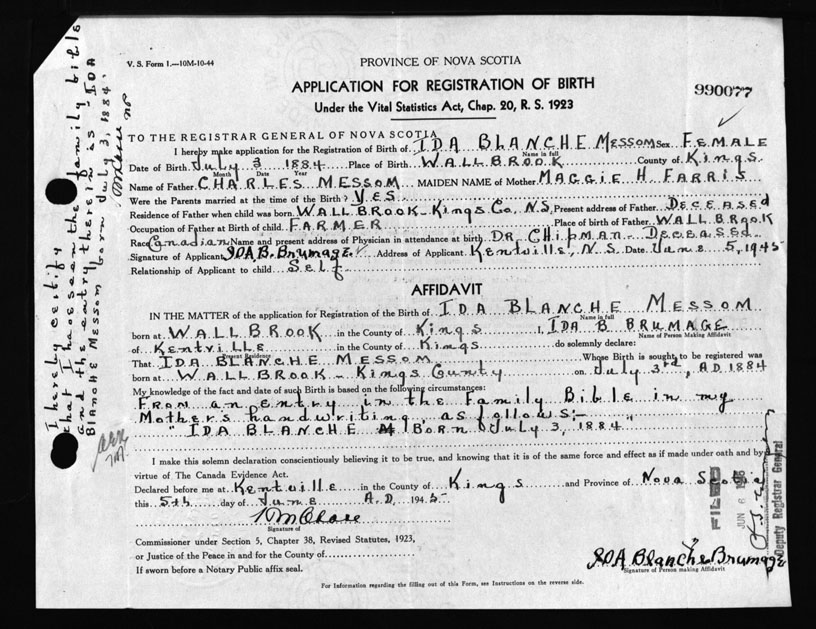 V. S. Form 1.—10M-10-44
PROVINCE OF NOVA SCOTIA
APPLICATION FOR REGISTRATION OF BIRTH
Under the Vital Statistics Act, Chap. 20, R. S. 1923
990077
TO THE REGISTRAR GENERAL OF NOVA SCOTIA
I hereby make application for the Registration of Birth of IDA BLANCHE MESSOM Sex FEMALE
Name in full
Date of Birth July 3 1884 Place of Birth WALLBROOK County of Kings
Month Date Year
Name of Father CHARLES MESSOM MAIDEN NAME of Mother MAGGIE H FARRIS
Were the Parents married at the time of the Birth? YES
Residence of Father when child was born WALLBROOK Kings Co, N.S. Present address of Father DECEASED
Occupation of Father at Birth of child FARMER Place of birth of Father WALL BROOK
Race Canadian Name and present address of Physician in attendance at birth DR. CHIPMAN - DECEASED
Signature of Applicant IDA B. Brumage Address of Applicant Kentville, N.S. Date June 5, 1945
Relationship of Applicant to child Self
AFFIDAVIT
IN THE MATTER of the application for Registration of the Birth of IDA BLANCHE MESSOM
Name in full
born at WALLBROOK in the County of Kings I, IDA B BRUMAGE
Name of Person Making Affidavit
of Kentville in the County of Kings do solemnly declare:
Present Residence
That IDA BLANCHE MESSOM Whose Birth is sought to be registered was
born at WALLBROOK - Kings County on July 3rd, A.D. 1884
My knowledge of the fact and date of such Birth is based on the following circumstances:
FROM an entry in the Family Bible in my
Mothers handwriting as follows:-
" IDA BLANCHE M Born July 3, 1884 "
I make this solemn declaration conscientiously believing it to be true, and knowing that it is of the same force and effect as if made under oath and by
virtue of The Canada Evidence Act.
Declared before me at Kentville in the County of Kings and Province of Nova Scotia
this 5th day of June A.D. 1945
Signature of
Commissioner under Section 5, Chapter 38, Revised Statutes, 1923,
or Justice of the Peace in and for the County of
If sworn before a Notary Public affix seal.
IDA Blanche Brumage
Signature of Person making Affidavit
For Information regarding the filling out of this Form, see Instructions on the reverse side.
I hereby certify
that I have seen the family bible
and the entry therein is "IDA
BLANCHE MESSOM born July 3, 1884"
FILED
JUN 6
Deputy Registrar General